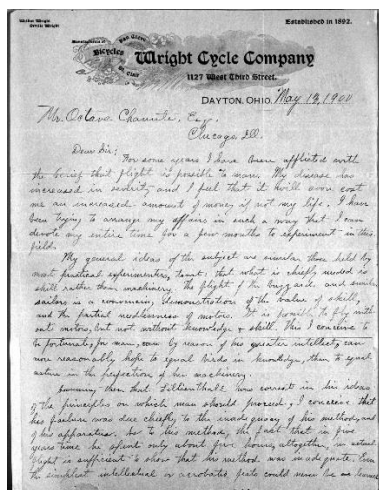 Wilbur Wright
Orville Wright
Established in 1892.
Manufacturers of
Bicycles
Van Cleve
St. Clair
Wright Cycle Company
1127 West Third Street.
DAYTON, OHIO, May 13, 1900
Mr. Octave Chanute, Esq.
Chicago, Ill.
Dear Sir:
For some years I have been afflicted with
the belief that flight is possible to man. My disease has
increased in severity and I feel that it will soon cost
me an increased amount of money if not my life. I have
been trying to arrange my affairs in such a way that I can
devote my entire time for a few months to experiment in this
field.
My general ideas of the subject are similar those held by
most practical experimenters, to wit: that what is chiefly needed is
skill rather than machinery. The flight of the buzzard and similar
sailors is a convincing demonstration of the value of skill,
and the partial needlessness of motors. It is possible to fly with-
out motors, but not without knowledge & skill. This I conceive to
be fortunate, for man, by reason of his greater intellect, can
more reasonably hope to equal birds in knowledge, than to equal
nature in the perfection of her machinery.
Assuming then that Lilienthal was correct in his ideas
of the principles on which man should proceed, I conceive that
his failure was due chiefly to the inadequacy of his method, and
of his apparatus. As to his method, the fact that in five
years time he spent only about five hours, altogether, in actual
flight is sufficient to show that his method was inadequate. Even
the simplest intellectual or acrobatic feats could never be learned